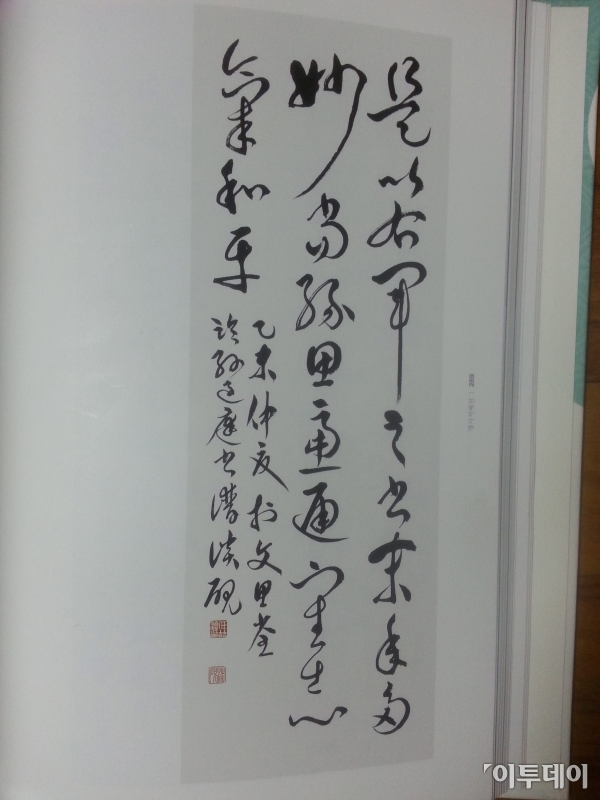 是以右軍之書末年多
妙當緣思慮通審志
氣和平
乙未仲夏於文里堂
臨孫過庭書譜淡硯
이투데이